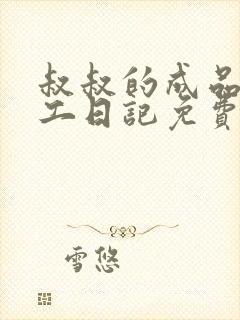 叔叔的成品
工日記免費
雪悠